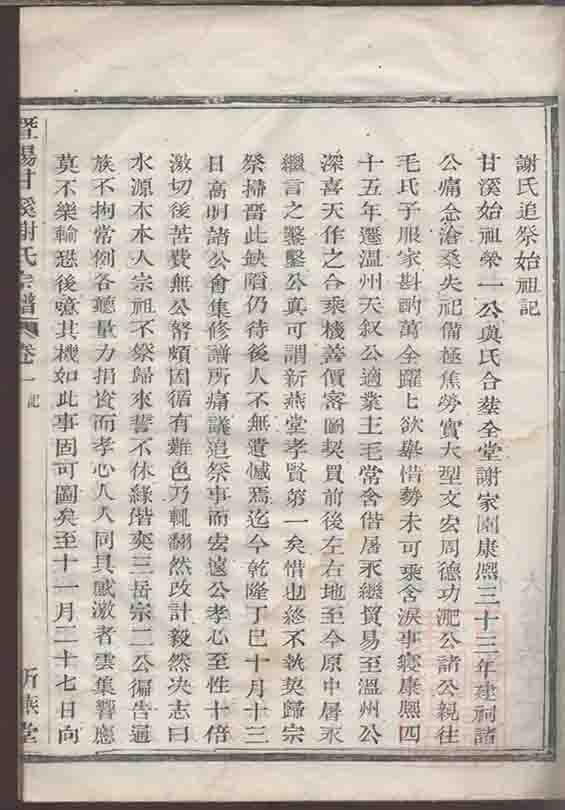 謝氏追祭始祖記
甘溪始祖榮一公奐氏合塟全堂謝家園康熙三十三年建祠諸
公痛念滄桑失祀備極焦勞實大型文宏周德功淝公諸公親往
毛氏子服家斟酌萬全躍上欲舉惜勢未可乘含淚事寢康熙四
十五年遷溫州天叙公適業主毛常含偕屠永繼貿易至溫州公
深喜天作之合乘機善價密圖契買前後左右地至今原中屠永
繼言之鑿鑿公真可謂新燕堂孝賢第一矣惜也終不執契歸宗
祭掃晋此缺陷仍待後人不無遺憾焉迄今乾隆丁巳十月十三
日高明諸公會集修譜所痛議追祭事而宏遠公孝心至性十倍
激切後苦費無公帑頗因循有難色乃輒翻然改計毅然决志曰
水源木本人宗祖不祭歸來誓不休緣偕奕三岳宗二公徧告通
族不拘常例各聽量力捐資而孝心人人同具感激者雲集響應
莫不樂輸恐後噫其機如此事固可圖矣至十一月二十七日向
暨陽甘溪謝氏宗譜 卷一 記 新燕堂